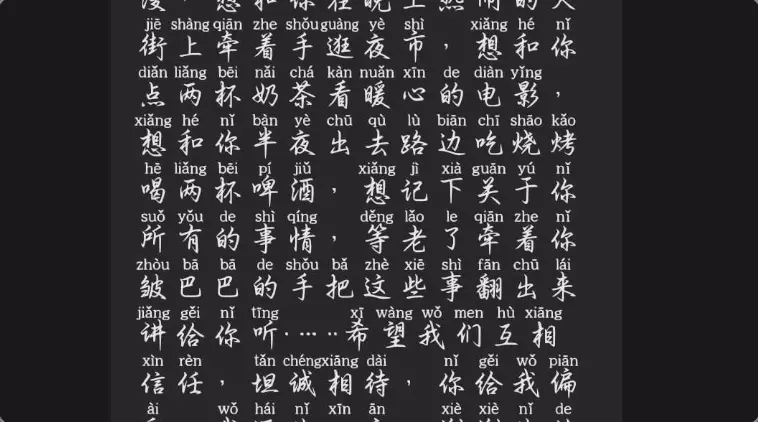 漫，想和你在晚上热闹的大
jiē shàng qiān zhe shǒu guàng yè shì xiǎng hé nǐ
街上牵着手逛夜市，想和你
diǎn liǎng bēi nǎi chá kàn nuǎn xīn de diàn yǐng
点两杯奶茶看暖心的电影，
xiǎng hé nǐ bàn yè chū qù lù biān chī shāo kǎo
想和你半夜出去路边吃烧烤
hē liǎng bēi pí jiǔ xiǎng jì xià guān yú nǐ
喝两杯啤酒，想记下关于你
suǒ yǒu de shì qíng děng lǎo le qiān zhe nǐ
所有的事情，等老了牵着你
zhòu bā bā de shǒu bǎ zhè xiē shì fān chū lái
皱巴巴的手把这些事翻出来
jiǎng gěi nǐ tīng xī wàng wǒ men hù xiāng
讲给你听……希望我们互相
xìn rèn tǎn chéng xiāng dài nǐ gěi wǒ piān
信任，坦诚相待，你给我偏
ài wǒ hái nǐ xīn ān xiè xiè nǐ de